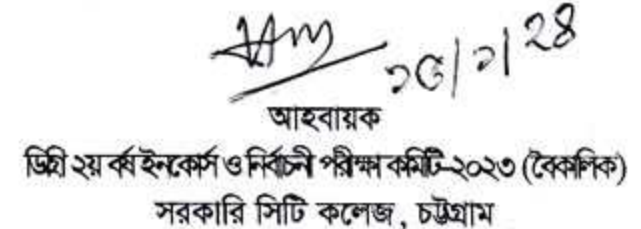 আহবায়ক
ডিগ্রী ২য় বর্ষ ইনকোর্স ও নির্বাচনী পরীক্ষা কমিটি-২০২৩ (বৈকালিক)
সরকারি সিটি কলেজ, চট্টগ্রাম